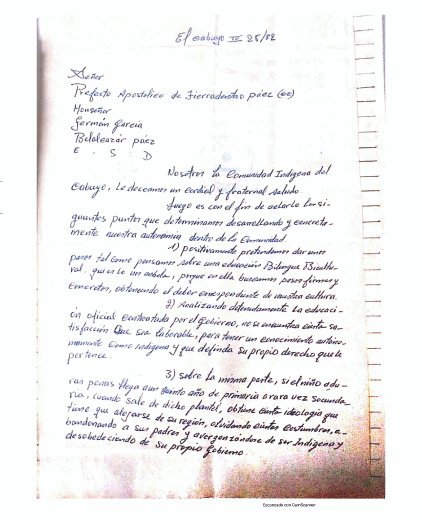 El cabuyo IV 25/82
Señor
Prefecto Apostolico de Tierradentro páez (ee)
Monseñor
Germán Garcia
Belalcazár páez
E. S. D
Nosotros la Comunidad Indigena del
Cabuyo, Le deceamos un cordial y fraternal saludo
luego es con el fin de aclarle los si-
guientes puntos que determinamos desarrollando y concreta-
mente nuestra autonomia dentro de la Comunidad.
1) positivamente pretendemos dar unos
pasos tal como pensamos sobre una educación Bilingue Bicultu-
ral, que es lo un adulto, porque en ella buscamos pasos firmes y
concretos, obteniendo el deber correspondiente de nuestra cultura.
2) Analizando detenidamente la educaci-
ón oficial contratada por el Gobierno, no se encuentra cierta sa-
tisfacción Que sea laborable, para tener un conocimiento autóno-
mamente como indigena y que defienda su propio derecho que le
pertenece.
3) sobre la misma parte, si el niño a du-
ras penas llega a un quinto año de primaria o rara vez secunda-
ria, cuando sale de dicho plantel, obtiene cierta ideologia que
tiene que alejarse de su región, olvidando ciertas costumbres, a-
bandonando a sus padres y avergonzándose de ser Indigena y
desobedeciendo de su propio Gobierno.
Escaneado con CamScanner